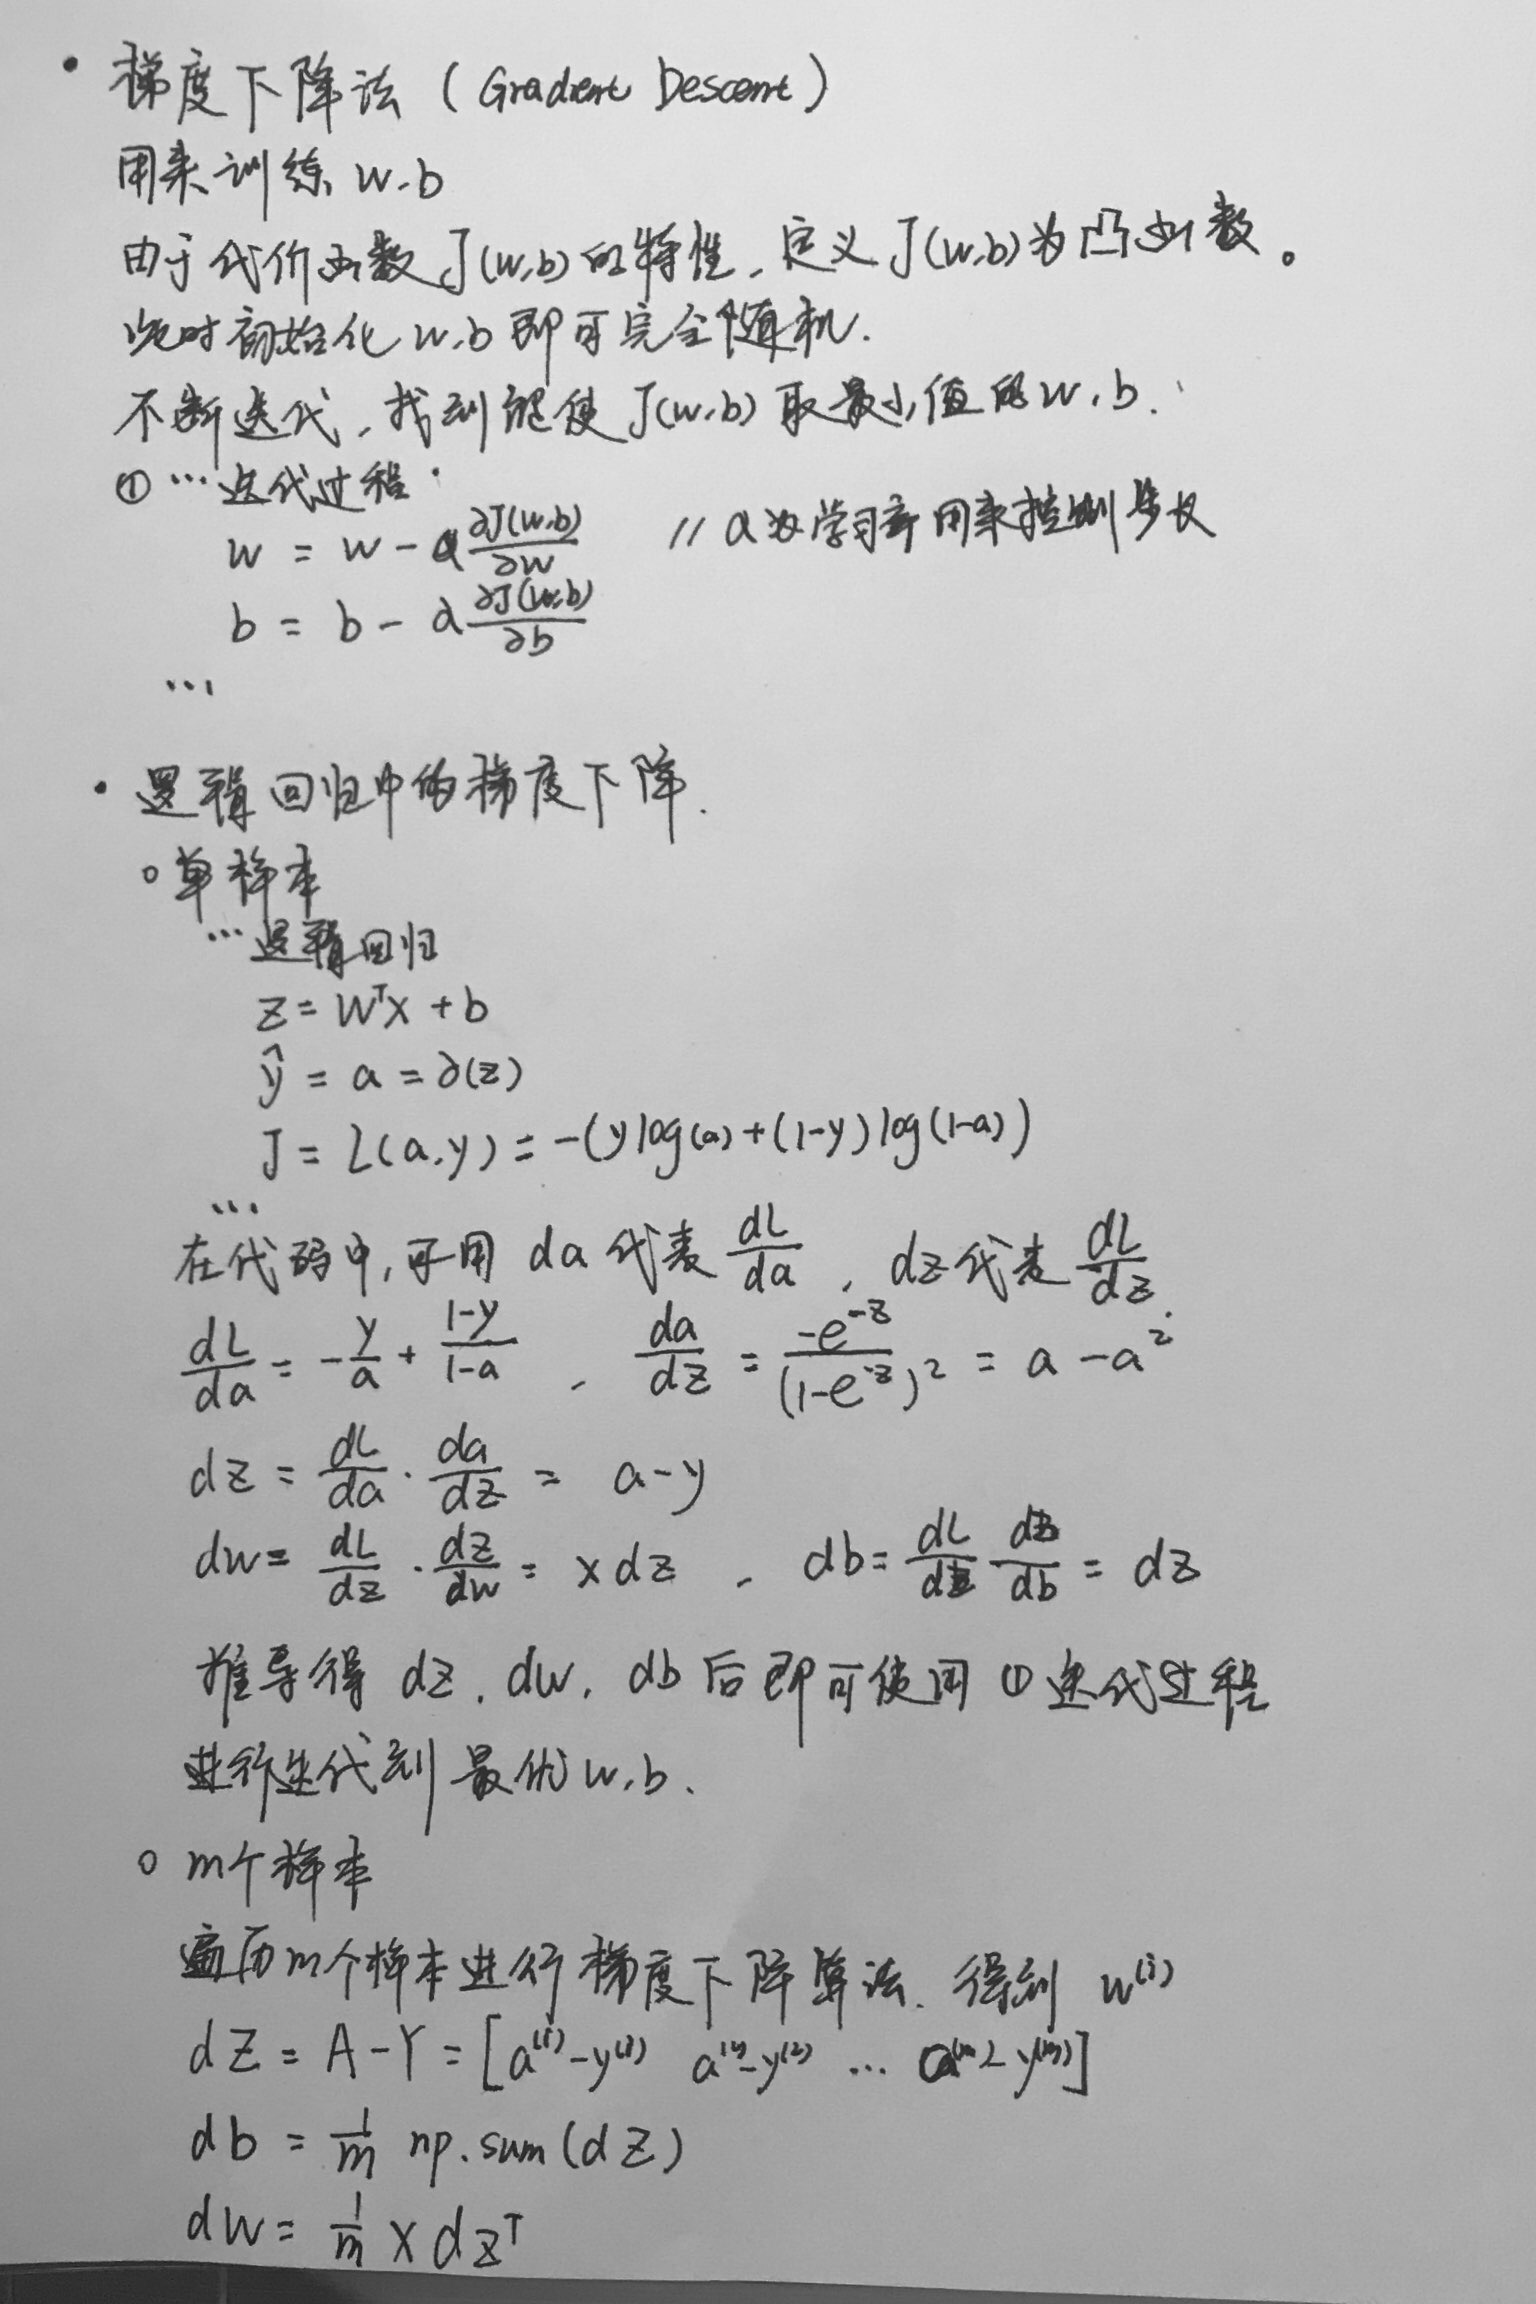 • 梯度下降法 (Gradient Descent)
用来训练 w.b
由于代价函数 J(w,b) 的特性, 定义 J(w,b) 为凸函数。
此时初始化 w,b 即可完全随机.
不断迭代, 找到能使 J(w,b) 取最小值的 w,b.
① … 迭代过程
w = w - α ∂J(w,b)/∂w // α为学习率用来控制步长
b = b - α ∂J(w,b)/∂b
…
• 逻辑回归中的梯度下降.
○ 单样本
… 逻辑回归
z = wᵀx + b
ŷ = a = ∂(z)
J = L(a,y) = -(y log(a) + (1-y) log(1-a))
…
在代码中, 可用 da 代表 dL/da , dz 代表 dL/dz.
dL/da = -y/a + (1-y)/(1-a) , da/dz = -e^(-z)/(1-e^(-z))² = a - a²
dz = dL/da · da/dz = a - y
dw = dL/dz · dz/dw = x dz , db = dL/dz dz/db = dz
推导得 dz, dw, db 后即可使用 ① 迭代过程
进行迭代到最优 w,b.
○ m个样本
遍历m个样本进行梯度下降算法. 得到 w⁽ⁱ⁾
dZ = A - Y = [a⁽¹⁾-y⁽¹⁾ a⁽²⁾-y⁽²⁾ … a⁽ᵐ⁾-y⁽ᵐ⁾]
db = 1/m np.sum(dZ)
dw = 1/m X dzᵀ